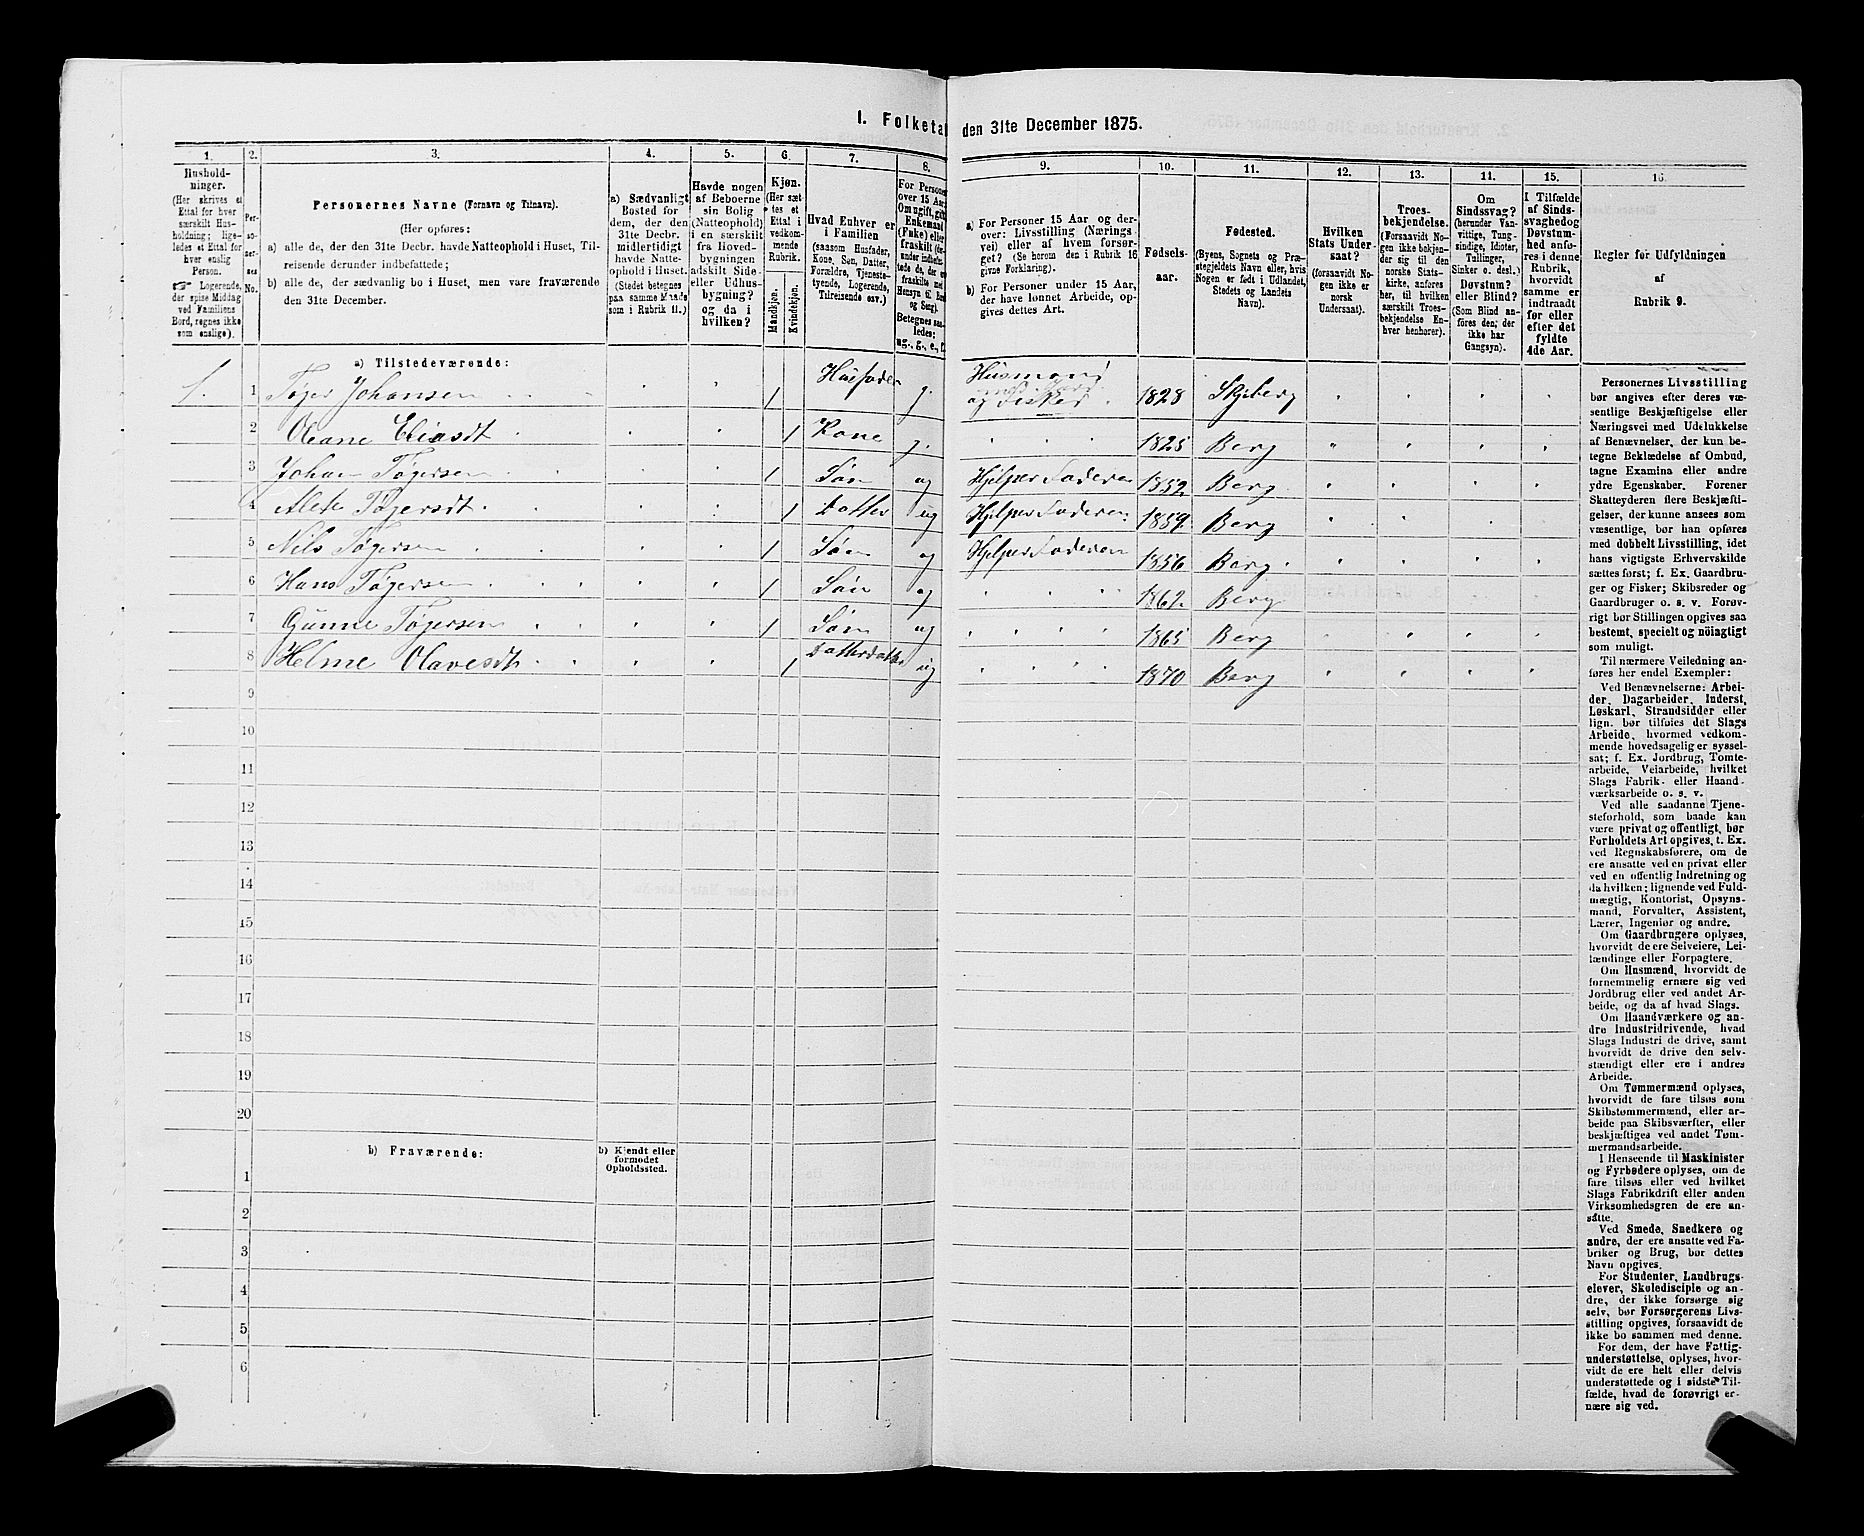 1. Folketal den 31te December 1875.
1. 2. 3. 4. 5. 6. 7. 8. 9. 10. 11. 12. 13. 14. 15. 16.
Hushold-
ninger.
(Her skrives et
Ettal for hver
særskilt Hus-
holdning; lige-
ledes et Ettal for
hver enslig
Person.
☞ Logerende,
der spise Middag
ved Familiens
Bord, regnes ikke
som enslige).
Per-
so-
ner-
nes
No.
Personernes Navne (Fornavn og Tilnavn).
(Her opføres:
a) alle de, der den 31te Decbr. havde Natteophold i Huset, Til-
reisende derunder indbefattede;
b) alle de, der sædvanlig bo i Huset, men vare fraværende
den 31te December.
a) Sædvanligt
Bosted for
dem, der den
31te Decbr.
midlertidigt
havde Natte-
ophold i Huset.
(Stedet betegnes
paa samme Maade
som i Rubrik 11.)
Havde nogen
af Beboerne
sin Bolig
(Natteophold)
i en særskilt
fra Hoved-
bygningen
adskilt Side-
eller Udhus-
bygning?
og da i
hvilken?
Kjøn.
(Her sæt-
tes et
Ettal i
vedkom-
mende
Rubrik.
Mandkjøn.
Kvindekjøn.
Hvad Enhver er
i Familien
(saasom Husfader,
Kone, Søn, Datter,
Forældre, Tjeneste-
tyende, Logerende,
Tilreisende osv.)
For Personer
over 15 Aar:
Om ugift, gift,
Enkemand
(Enke) eller
fraskilt
Betegnes saa-
ledes:
ug., g., e., f.
a) For Personer 15 Aar og der-
over: Livsstilling (Nærings-
vei) eller af hvem forsør-
get? (Se herom den i Rubrik 16
givne Forklaring).
b) For Personer under 15 Aar,
der have lønnet Arbeide, op-
gives dettes Art.
Fødsels-
aar.
Fødested.
(Byens, Sognets og Præ-
stegjeldets Navn eller, hvis
Nogen er født i Udlandet,
Stedets og Landets
Navn).
Hvilken
Stats Under-
saat?
(forsaavidt No-
gen ikke er
norsk
Undersaat).
Troes-
bekjendelse.
(Forsaavidt No-
gen ikke bekjen-
der sig til den
norske Stats-
kirke, anføres
her, til hvilken
særskilt Troes-
bekjendelse En-
hver henhører).
Om
Sindssvag?
(herunder Van-
vittige, Tung-
sindige, Idioter,
Tullinger,
Sinker o. desl.)
Døvstum?
eller Blind?
(Som Blind an-
føres den, der
ikke har
Gangsyn).
I Tilfælde
af Sinds-
svaghed og
Døvstum-
hed anfø-
res i denne
Rubrik,
hvorvidt
samme er
indtraadt
før eller
efter det
fyldte
4de Aar.
Regler for Udfyldningen
af
Rubrik 9.
a) Tilstedeværende:
1. 1 Tøger Johansen 1 Husfader g. Husmand med Jord og Fisker 1828 Skjeberg
2 Oleane Eliasdt 1 Kone g. 1825 Berg
3 Johan Tøgersen 1 Søn ug Hjelper Faderen 1852 Berg
4 Alete Tøgersdt 1 Datter ug Hjelper Faderen 1859 Berg
5 Nils Tøgersen 1 Søn ug Hjelper Faderen 1856 Berg
6 Hans Tøgersen 1 Søn ug 1862 Berg
7 Gunne Tøgersen 1 Søn ug 1865 Berg
8 Helme Olavesdt 1 Datterdatter ug 1870 Berg
9
10
11
12
13
14
15
16
17
18
19
20
b) Fraværende:
b) Kjendt eller
formodet
Opholdssted.
1
2
3
4
5
6
Personernes Livsstilling
bør angives efter deres væ-
sentlige Beskjæftigelse eller
Næringsvei med Udelukkelse
af Benævnelser, der kun be-
tegne Beklædelse af Ombud,
tagne Examina eller andre
ydre Egenskaber. Forener
Skatteyderen flere Beskjæfti-
gelser, der kunne ansees som
væsentlige, bør han opføres
med dobbelt Livsstilling, idet
hans vigtigste Erhvervskilde
sættes først; f. Ex. Gaardbru-
ger og Fisker; Skibsreder og
Gaardbruger o. s. v. Forøv-
rigt bør Stillingen opgives saa
bestemt, specielt og nøiagtigt
som muligt.
Til nærmere Veiledning an-
føres her endel Exempler:
Ved Benævnelserne: Arbei-
der, Dagarbeider, Inderst,
Løskarl, Strandsidder eller
lign. bør tilføies det Slags
Arbeide, hvormed vedkom-
mende hovedsagelig er syssel-
sat; f. Ex. Jordbrug, Tomte-
arbeide, Veiarbeide, hvilket
Slags Fabrik- eller Haand-
værksarbeide o. s. v.
Ved alle saadanne Tjene-
steforhold, som baade kan
være privat og offentligt, bør
Forholdets Art opgives, t. Ex.
ved Regnskabsførere, om de
ere ansatte ved en privat eller
ved en offentlig Indretning og
da hvilken; lignende ved Fuld-
mægtig, Kontorist, Opsyns-
mand, Forvalter, Assistent,
Lærer, Ingeniør og andre.
Om Gaardbrugere oplyses,
hvorvidt de ere Selveiere, Lei-
lændinge eller Forpagtere.
Om Husmænd, hvorvidt de
fornemmelig ernære sig ved
Jordbrug eller ved andet Ar-
beide, og da af hvad Slags.
Om Haandværkere og an-
dre Industridrivende, hvad
Slags Industri de drive, samt
hvorvidt de drive den selv-
stændigt eller ere i andres
Arbeide.
Om Tømmermænd oplyses,
hvorvidt de fare tilsøs som
Skibstømmermænd, eller ar-
beide paa Skibsværfter, eller
beskjæftiges ved andet Tøm-
mermandsarbeide.
I Henseende til Maskinister
og Fyrbødere oplyses, om de
fare tilsøs eller ved hvilket
Slags Fabrikdrift eller anden
Virksomhedsgren de ere an-
satte.
Ved Smede, Snedkere og
andre, der ere ansatte ved Fa-
briker og Brug, bør dettes
Navn opgives.
For Studenter, Landbrugs-
elever, Skoledisciple og an-
dre, der ikke forsørge sig
selv, bør Forsørgerens Livs-
stilling opgives, forsaavidt de
ikke bo sammen med denne.
For dem, der have Fattig-
understøttelse, oplyses, hvor-
vidt de ere helt eller delvis
understøttede og i sidste Til-
fælde, hvad de forøvrigt er-
nære sig ved.